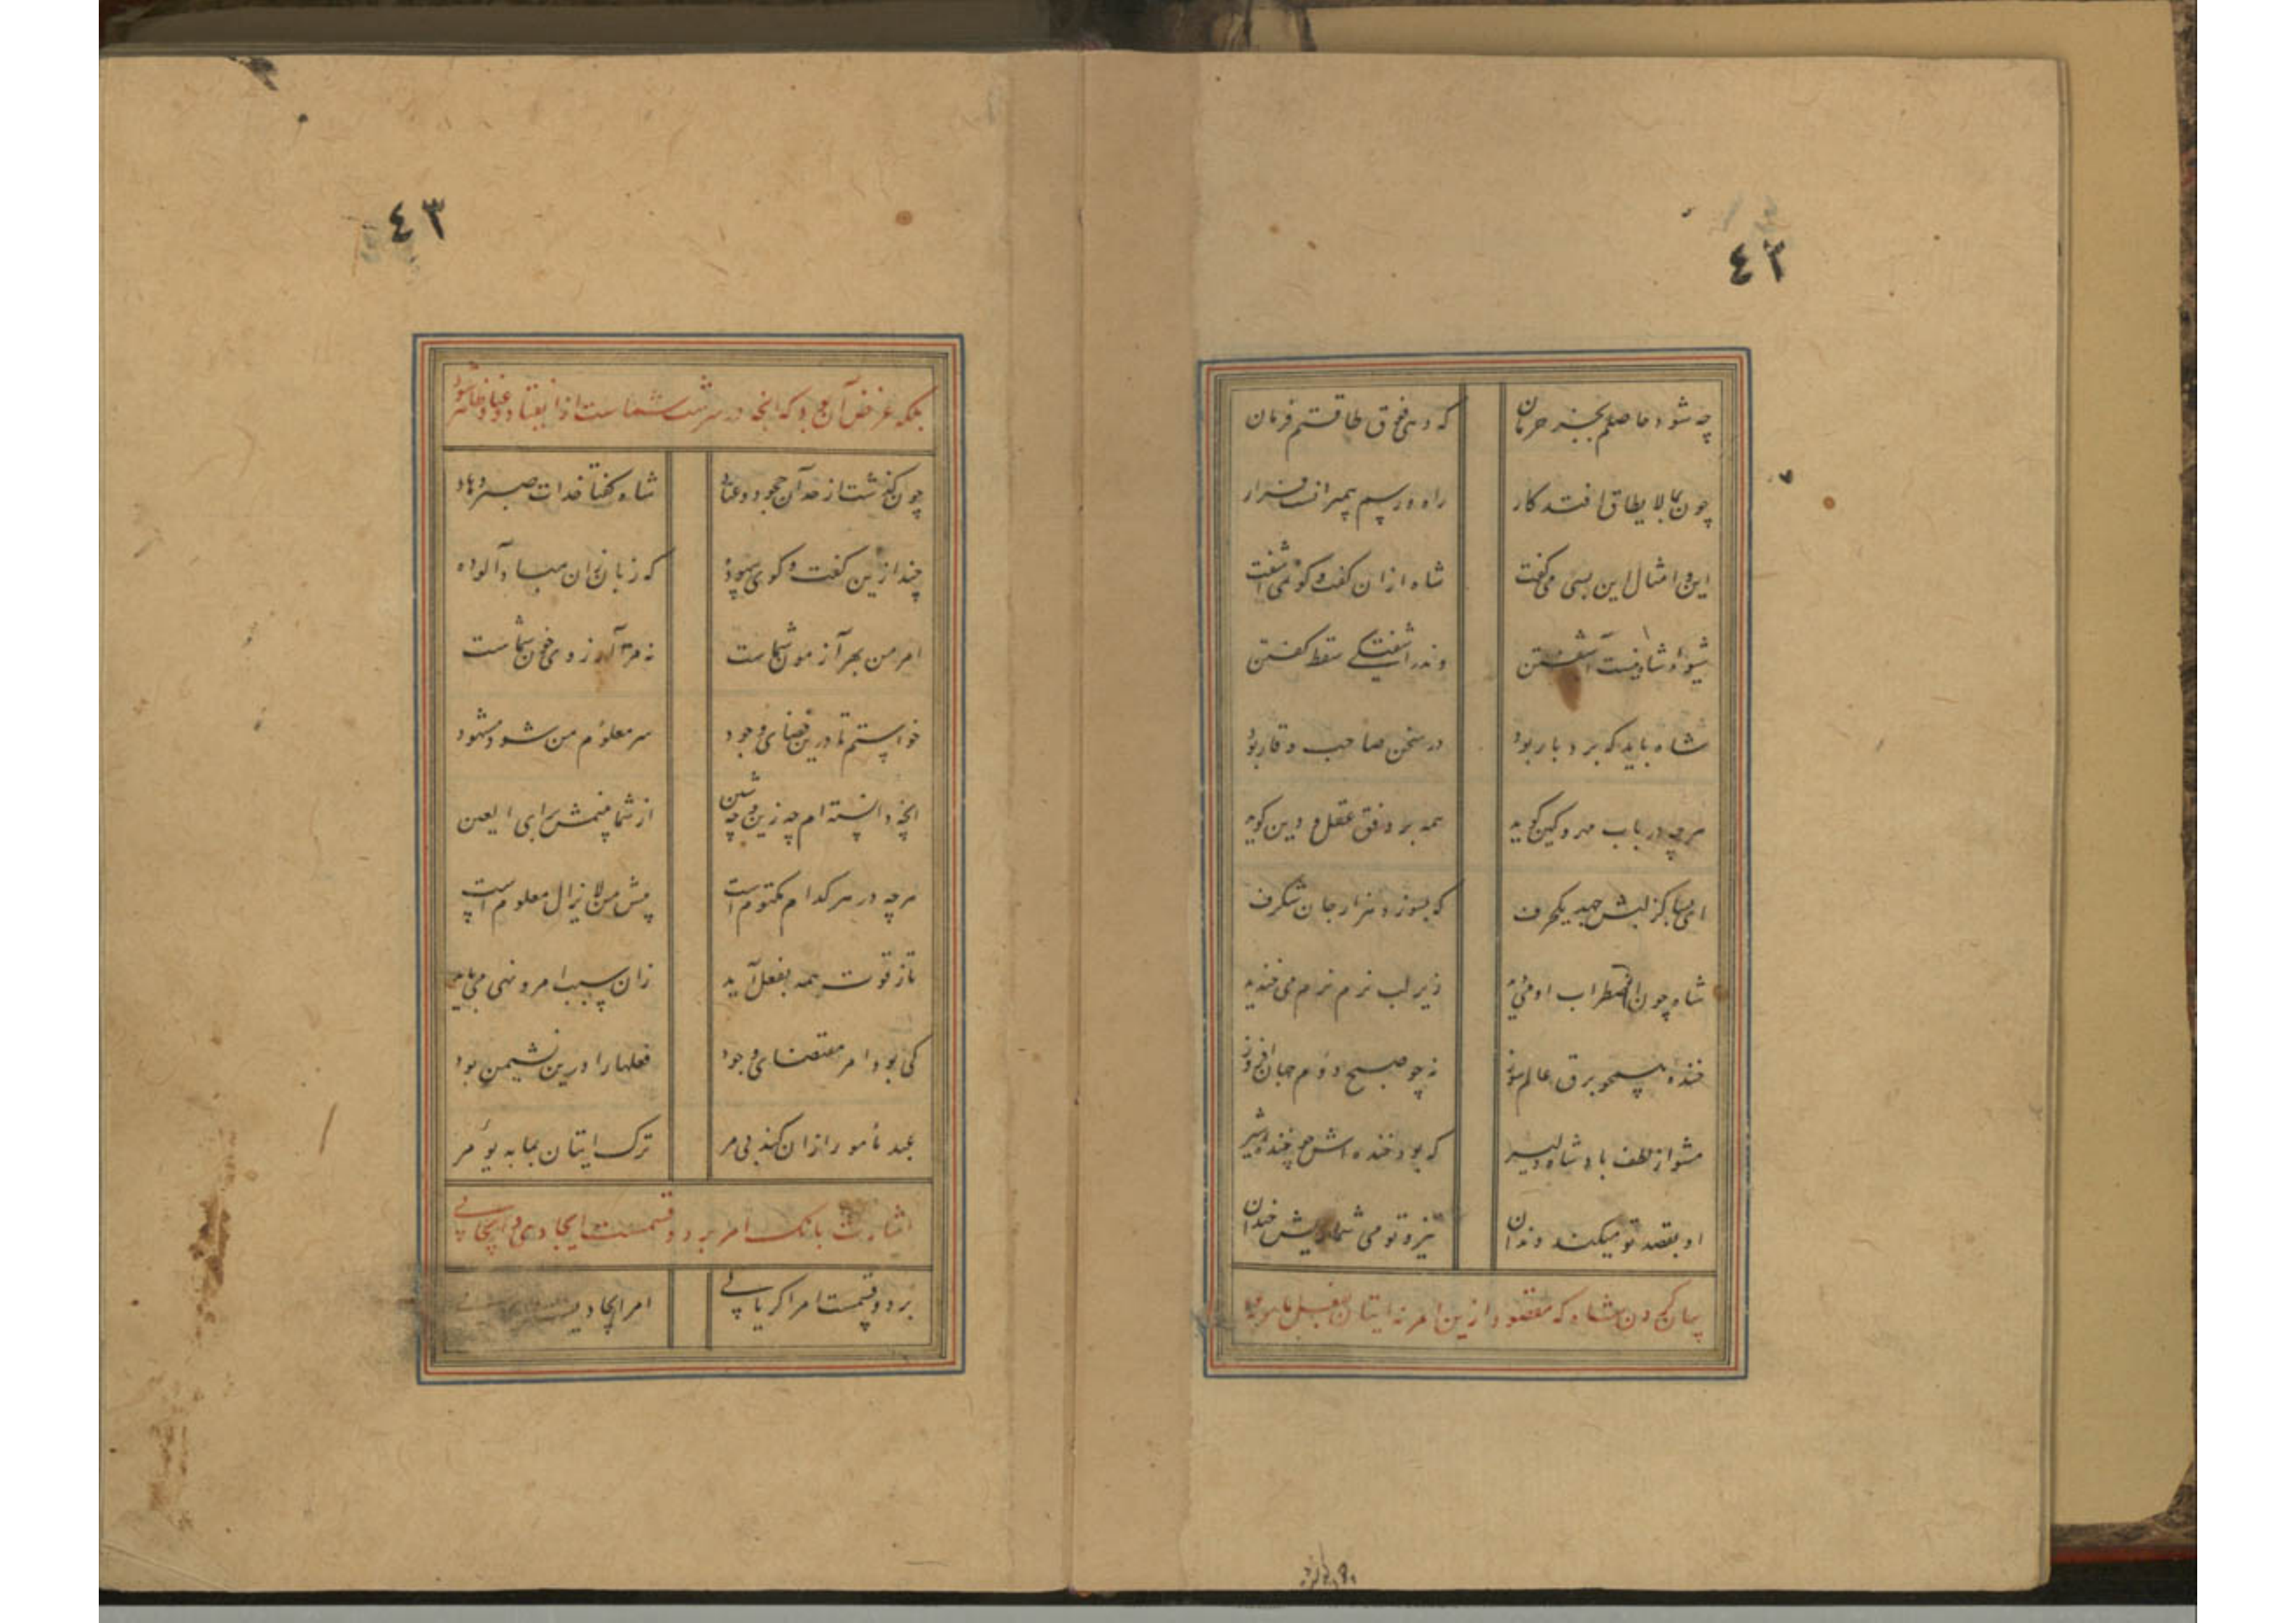 ٤٢
چه شود حاصلم بجز حرمان که دهی فوق طاقتم فرمان
چون بما لا یطاق افتد کار راه و رسم پیمبرانست فرار
این و امثال این بسی می گفت شاه ازان گفت و گو نمی آشفت
شیوه شاه نیست آشفتن وندر آشفتگی سقط گفتن
شاه باید که بردبار بود در سخن صاحب وقار بود
هرچه در باب مهر و کین گوید همه بر وفق عقل و دین گوید
ای بسا کز لبش جهد یکحرف که بسوزد هزار جان شگرف
شاه چون اضطراب او می دید زیر لب نرم نرم می خندید
خنده همچو برق عالم سوز نه چو صبح دوم جهان افروز
مشو از لطف پادشاه دلیر که بود خنده اش چو خنده شیر
او بقصد تو میکند دندان تیز و تو می شماریش خندان
بیان کردن شاه که مقصود ازین امر نه ایتان بفعل مامور به
٤٣
بلکه غرض آن بود که آنچه در سرشت شماست از انقیاد و عناد ظاهر شود
چون گذشت از حد آن جحود و عناد شاه گفتا خدات صبر دهاد
چند ازین گفت و گوی بیهوده که زبان زان مباد آلوده
امر من بهر آزمون شماست نه مرا آرزوی خون شماست
خواستم تا درین فضای وجود سر معلوم من شود مشهود
آنچه دانسته ام چه زین و چه شین از شما بینمش برای العین
هرچه در هر کدام مکتوم است پیش من لایزال معلوم است
تا ز قوت همه بفعل آید زان سبب امر و نهی می باید
کی بود امر مقتضای وجود فعلها را درین نشیمن بود
عبد مأمور را ازان کند بی مر ترک ایتان بما به یؤمر
اشارت بآنک امر بر دو قسمست ایجادی و ایجابی
بر دو قسمست امر اگر یابی امر ایجادیست